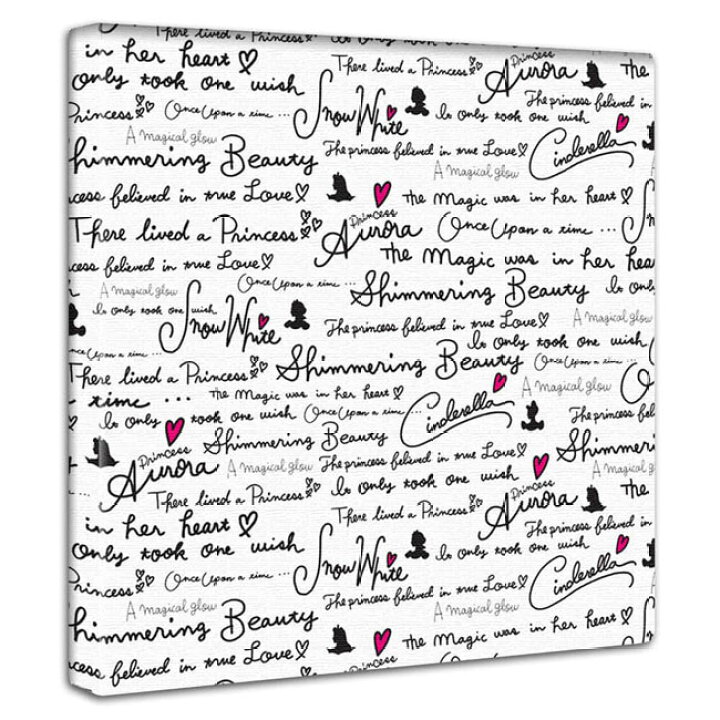 There lived a Princess
in her heart
only took one wish
There lived a Princess
Princess
Aurora
The
Princess
Once Upon a time ...
Snow White
It only took one wish
The princess believed in
A magical glow
Shimmering Beauty
The princess believed in true Love
A magical glow
Cinderella
believed in true Love
The Magic was in her heart
There lived a Princess
Princess
Aurora
Once Upon a time ...
The Magic was in her hea
believed in true Love
Once Upon a time ...
Shimmering Beauty
It onl
A magical glow
It only took one wish
Snow White
The princess believed in true Love
A magical
It only took one wish
Once Upon a time ...
Shimmering Beauty
Once Upon a time ...
There lived a Princess
time ...
The Magic was in her heart
A magical glow
It only took one wish
Once Upon a time ...
Cinderella
The princess believed
Princess
Aurora
Shimmering Beauty
Shimmeri
A magical glow
The princess believed in true Love
A magical
There lived a Princess
It only took one wish
Princess
Aurora
The
in her heart
There lived a Princess
The princess believed in
only took one wish
Snow White
It only took one wish
Princess
Once Upon a time ...
Cinderella
A magical glow
The princess believed in true Love
A magical glow
Shimmering Beauty
believed in true Love
Princess
The Magic was in her heart